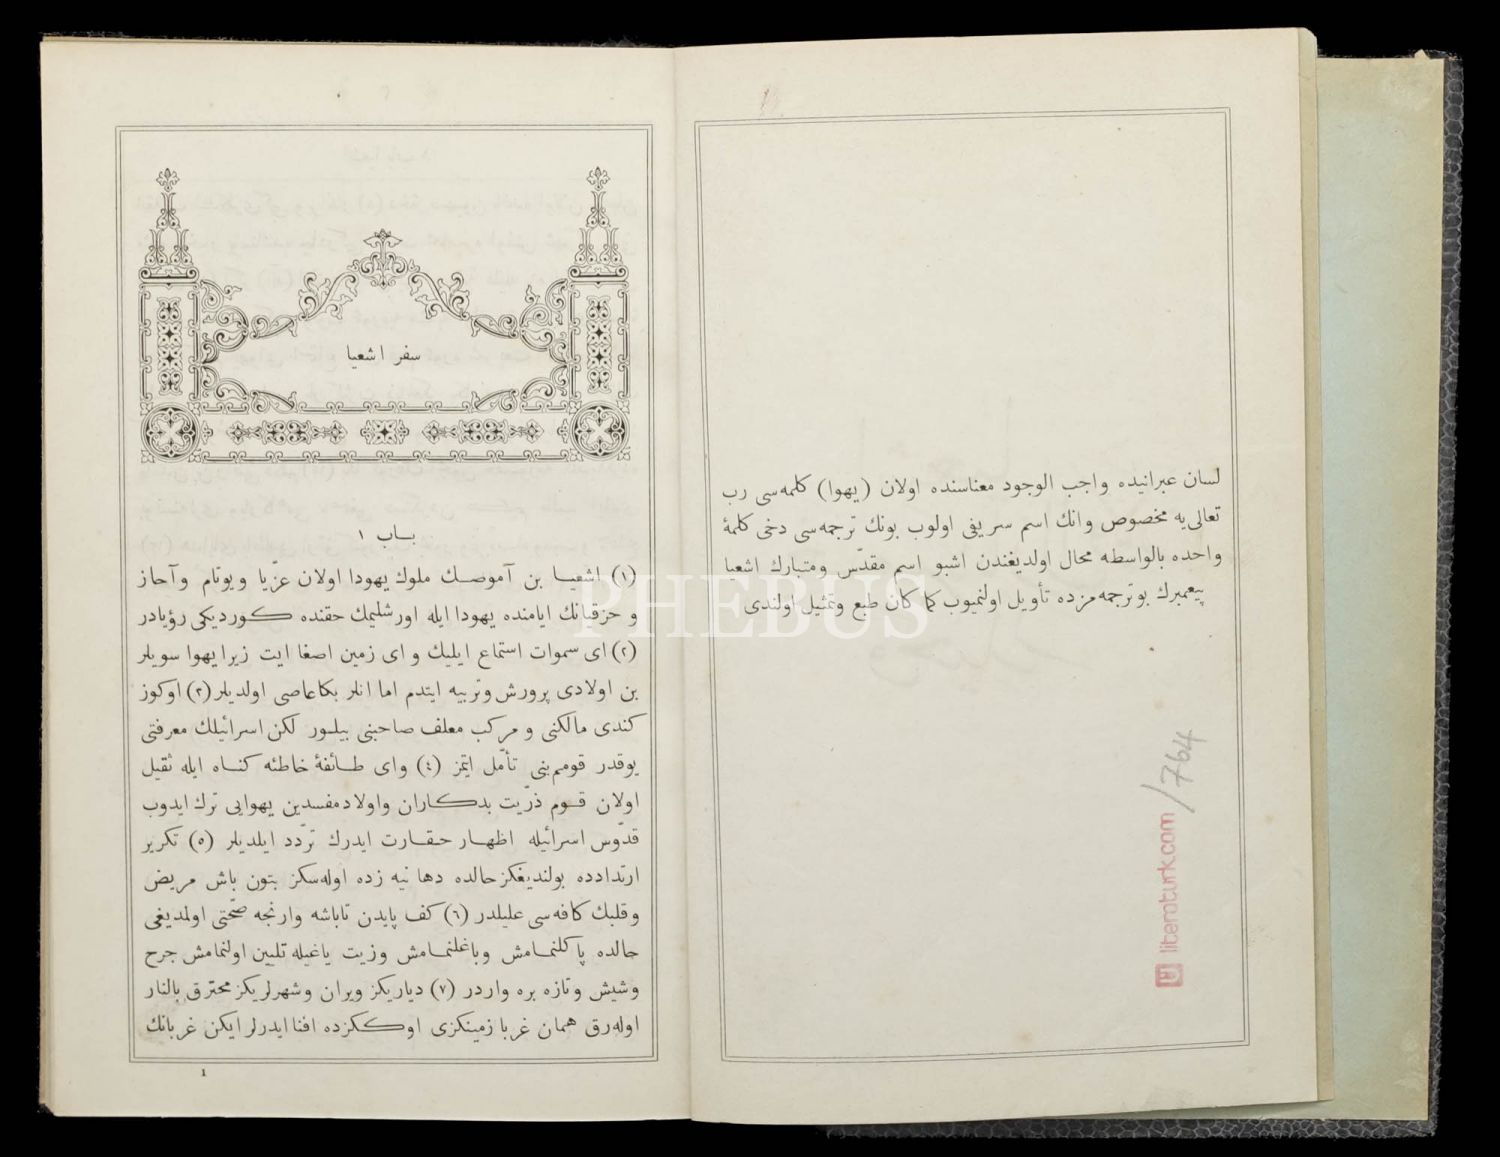 لسان عبرانيده واجب الوجود معناسنده اولان (يهوا) كلمه‌سى رب
تعالى‌يه مخصوص وانك اسم سريفى اولوب بونك ترجمه‌سى دخى كلمهٔ
واحده بالواسطه محال اولديغندن اشبو اسم مقدّس ومتبارك اشعيا
پيغمبرك بو ترجمه‌مزده تأويل اولنميوب كما كان طبع وتمثيل اولندى
literaturk.com /764
سفر اشعيا
بـاب ١
(١) اشعيـا بن آموصـك ملوك يهودا اولان عزّيا و يوتام وآحاز
و حزقيانك ايامنده يهودا ايله اورشليمك حقنده كورديكى رؤيادر
(٢) اى سموات استماع ايليك و اى زمين اصغا ايت زيرا يهوا سويلر
بن اولادى پرورش وتربيه ايتدم اما انلر بكا عاصى اولديلر (٣) اوكوز
كندى مالكنى و مركب معلف صاحبنى بيلـور لكن اسرائيلك معرفتى
يوقدر قومم بنى تأمّل ايتمز (٤) واى طـائفهٔ خاطئه كنـاه ايله ثقيل
اولان قـوم ذرّيت بدكاران واولاد مفسدين يهوايى ترك ايدوب
قدّوس اسرائيله اظهـار حقـارت ايدرك تردّد ايلديلر (٥) تكرير
ارتدادده بولنديغكز حالده دها نيه زده اوله‌سكز بتون باش مريض
و قلبك كافه‌سى عليلدر (٦) كف پايدن تاباشه وارنجه صحّتى اولمديغى
حالده پاكلنمـامش وباغلنمـامش وزيت ياغيله تليين اولنمامش جرح
وشيش وتازه بره واردر (٧) دياريكز ويران وشهرلريكز محترق بالنار
اوله‌رق همان غربا زمينكزى اوكـكزده افنا ايدرلر ايكن غربانك
١
PHEBUS